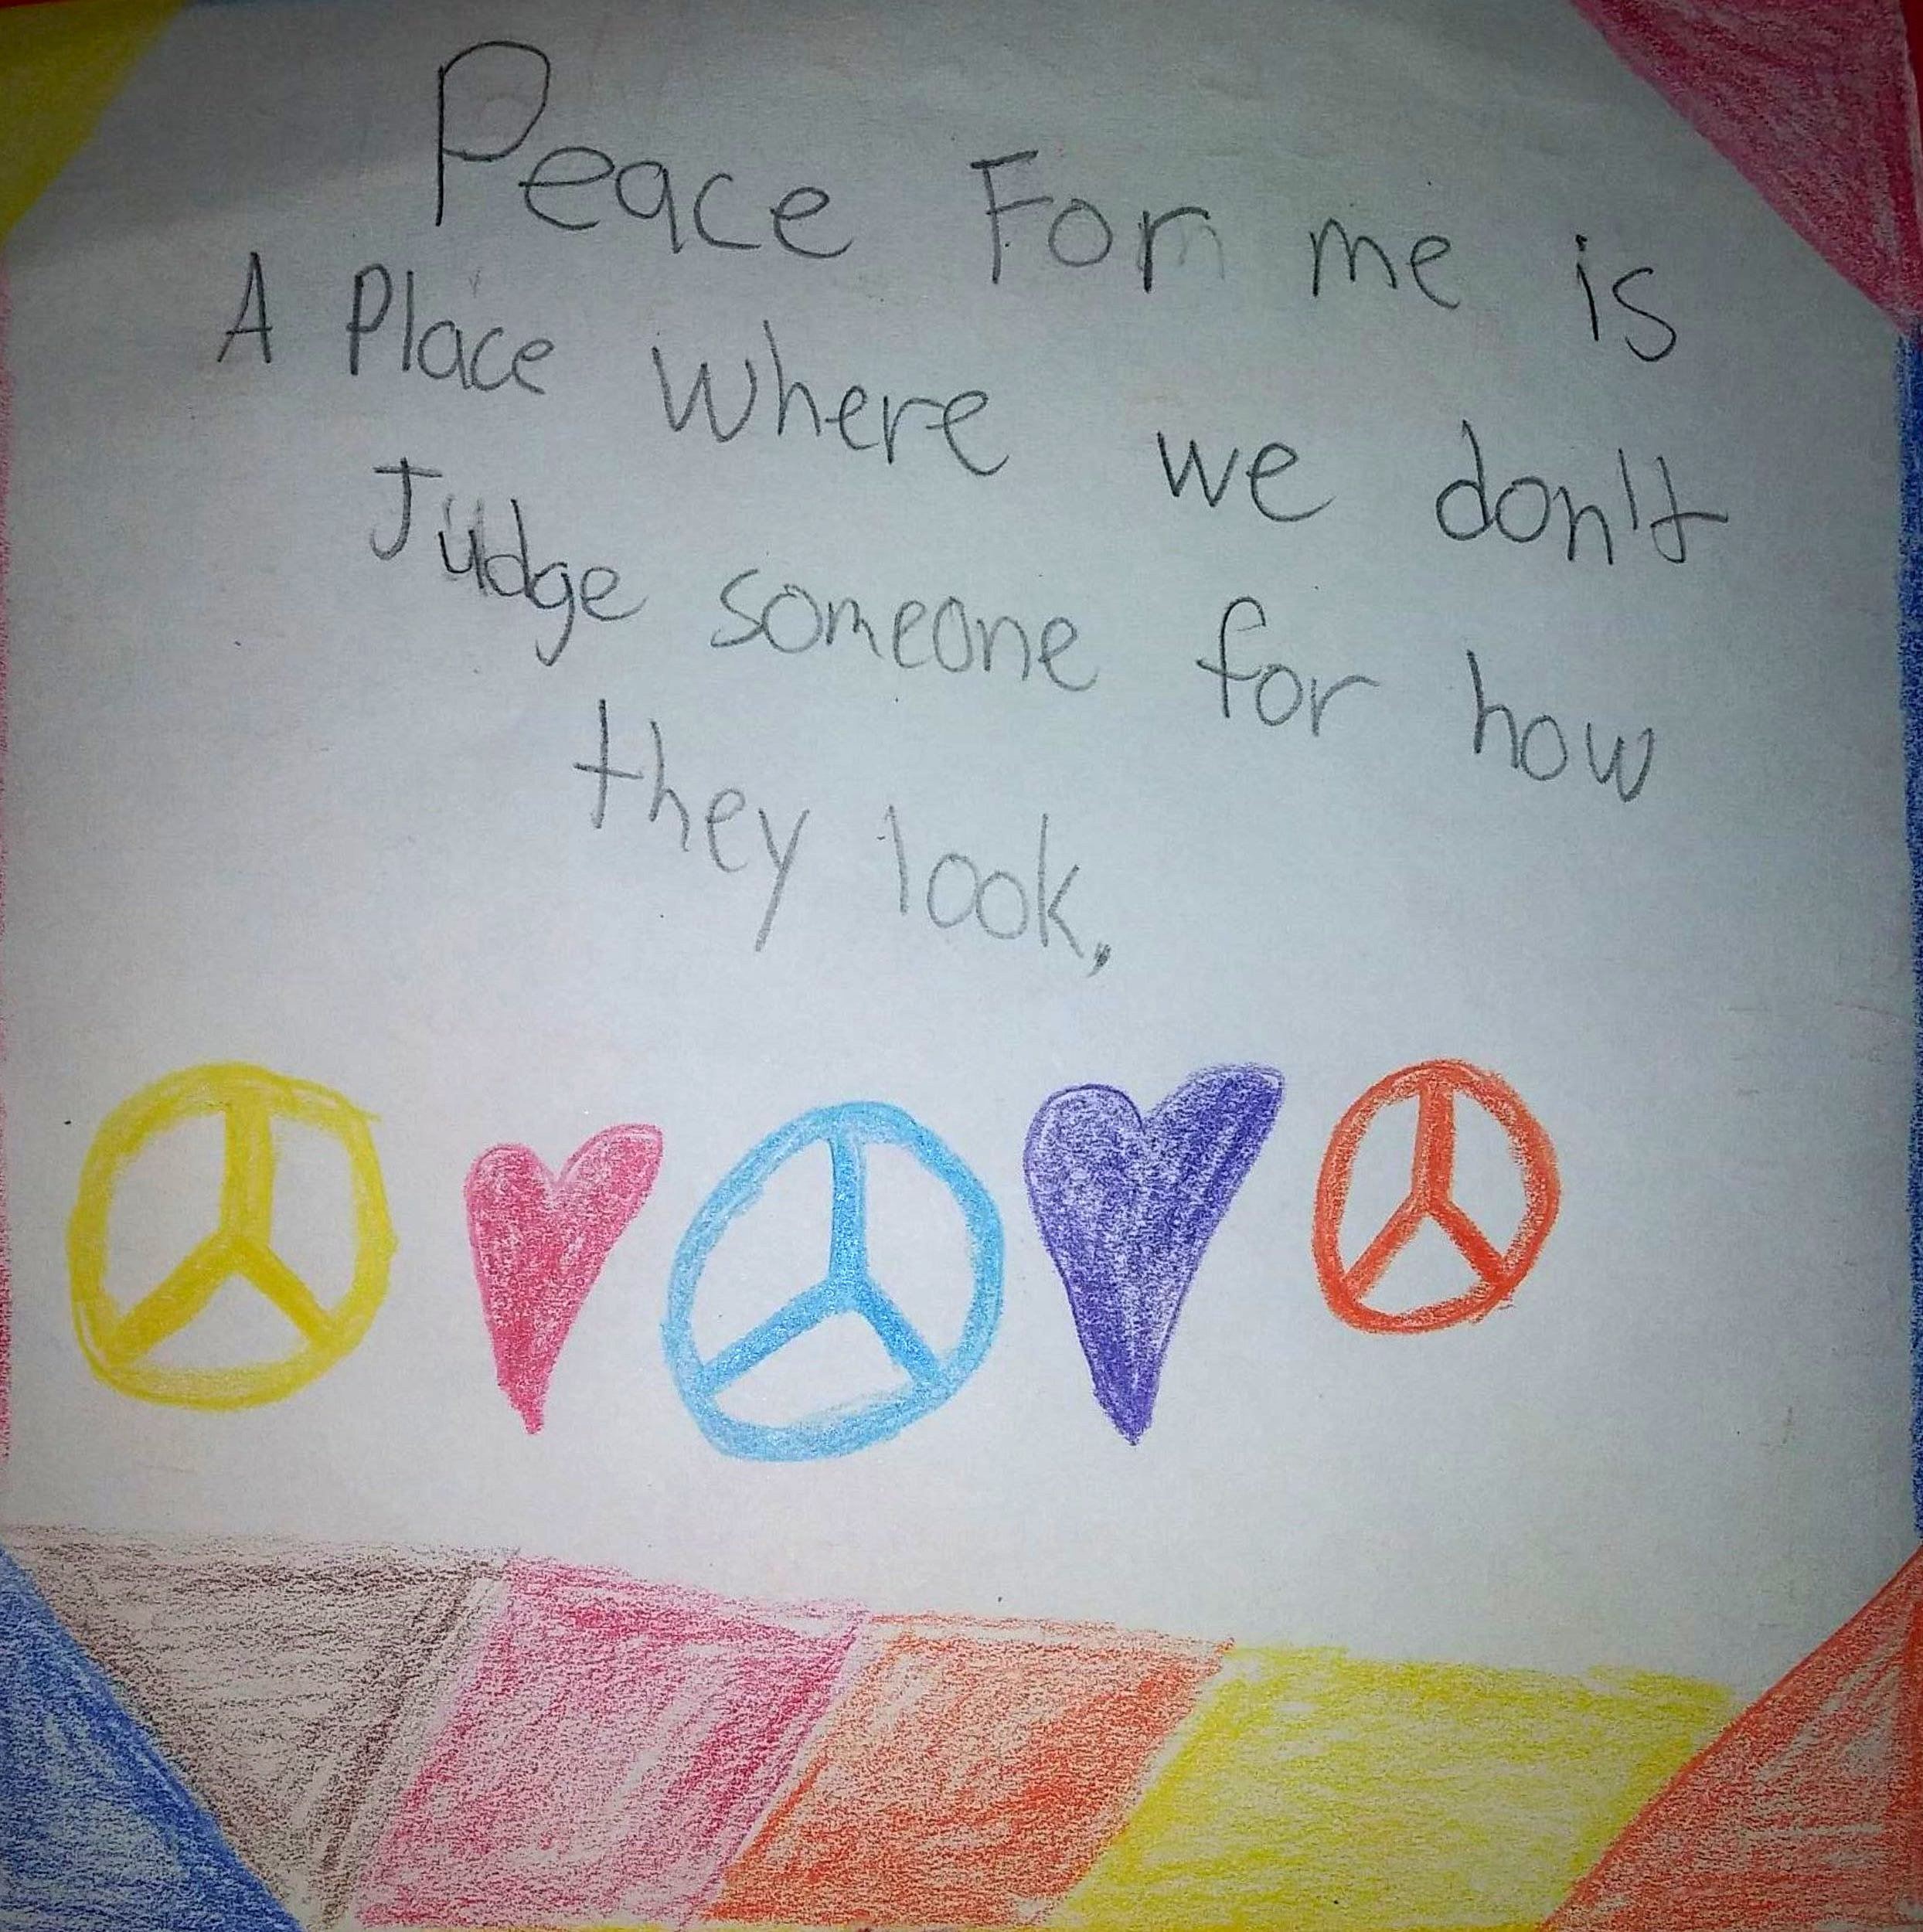 Peace For me is
A Place where we don't
Judge someone for how
they look.